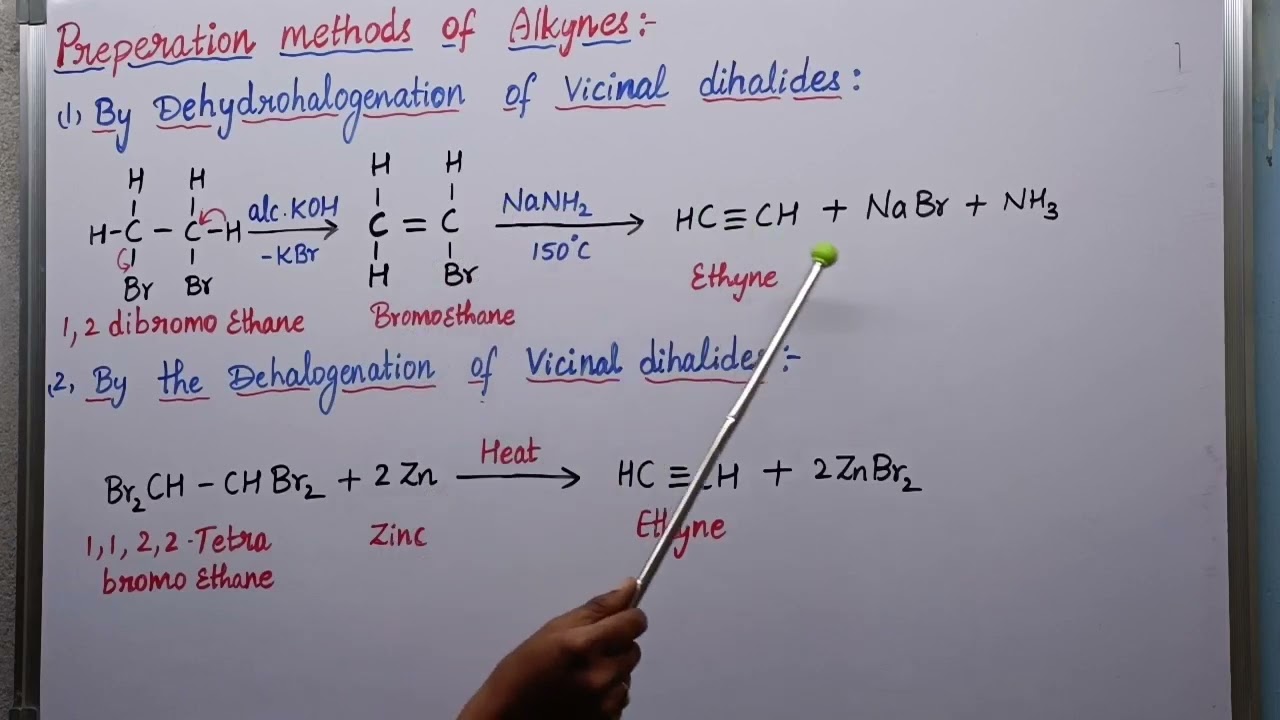 Preperation methods of Alkynes:-
(1) By Dehydrohalogenation of Vicinal dihalides:
H H H H
H-C-C-H alc.KOH -KBr C=C NaNH₂ 150°C HC≡CH + NaBr + NH₃
Br Br H Br Ethyne
1,2 dibromo Ethane BromoEthane
(2, By the Dehalogenation of Vicinal dihalides:-
Br₂CH-CHBr₂ + 2Zn Heat HC≡CH + 2ZnBr₂
1,1,2,2-Tetra Zinc Ethyne
bromo Ethane